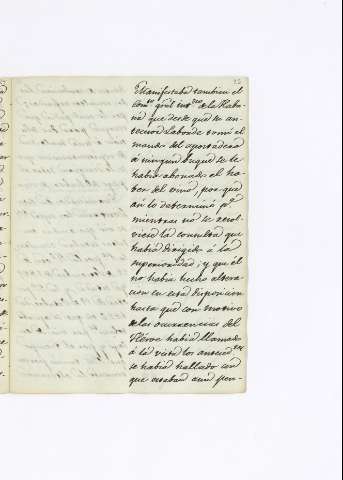 Manifestaba tambien el
Com.te gral int.no de la Haba-
na que desde que su an-
tecesor Laborde tomó el
mando del apostadero
á ningun buque se le
había abonado el ha-
ber del vino, por que
asi lo determinó p.r
mientras no se resol-
viese la consulta que
había dirigido á la
superioridad; y que él
no había hecho altera-
cion en esta disposicion
hasta que con motivo
de las ocurrencias del
Héroe había llamado
á la vista los anteced.tes
se había hallado con
que estaban aun pen-